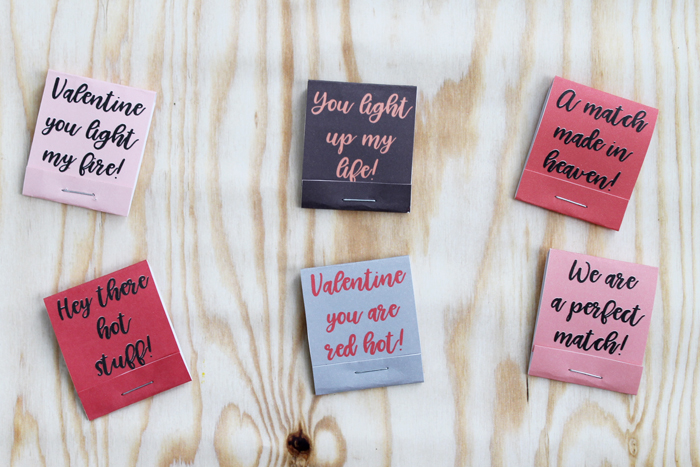 Valentine
you light
my fire!
You light
up my
life!
A match
made in
heaven!
Hey there
hot
stuff!
Valentine
you are
red hot!
We are
a perfect
match!